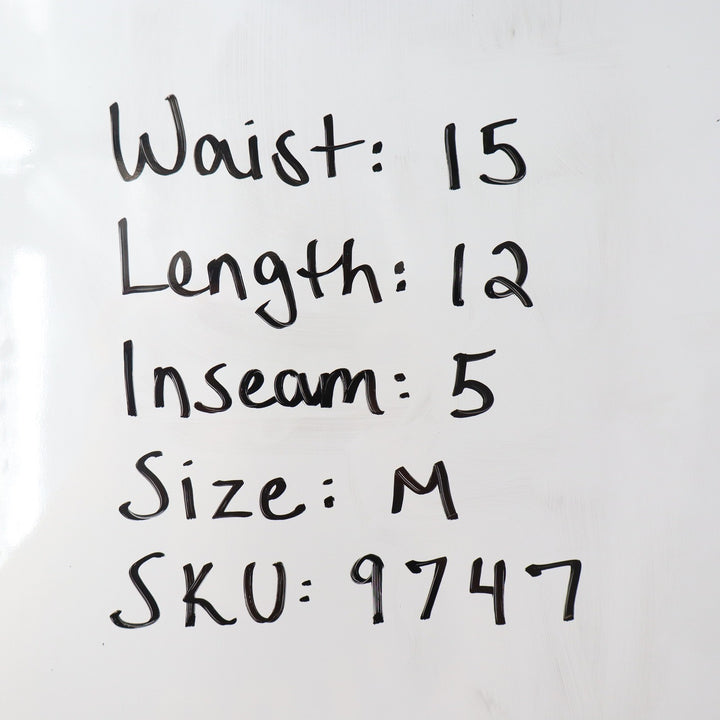 Waist: 15
Length: 12
Inseam: 5
Size: M
SKU: 9747